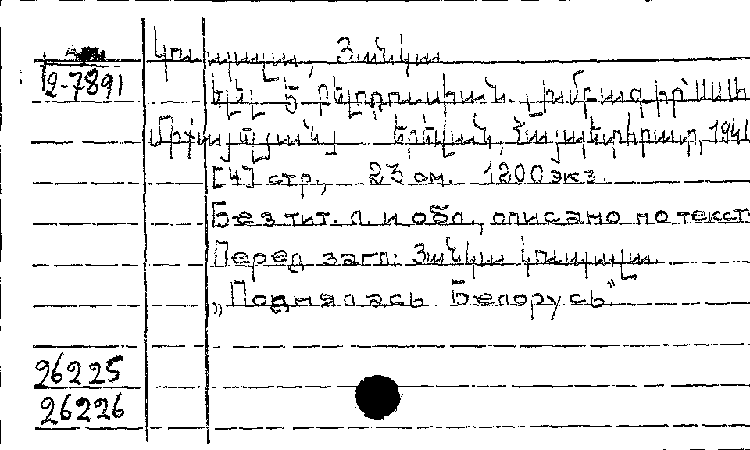 Կուպալա, Յանկա
12-7891
Ելել է բելոռուսիան. [Խմբագիր՝
Երեվան, Հայպետհրատ, 1941
[4] стр., 23 см. 1200 экз.
Без тит. л. и обл., описано по текст
Перед загл: Յանկա Կուպալա
„Поднялась Белорусь"
26225
26226